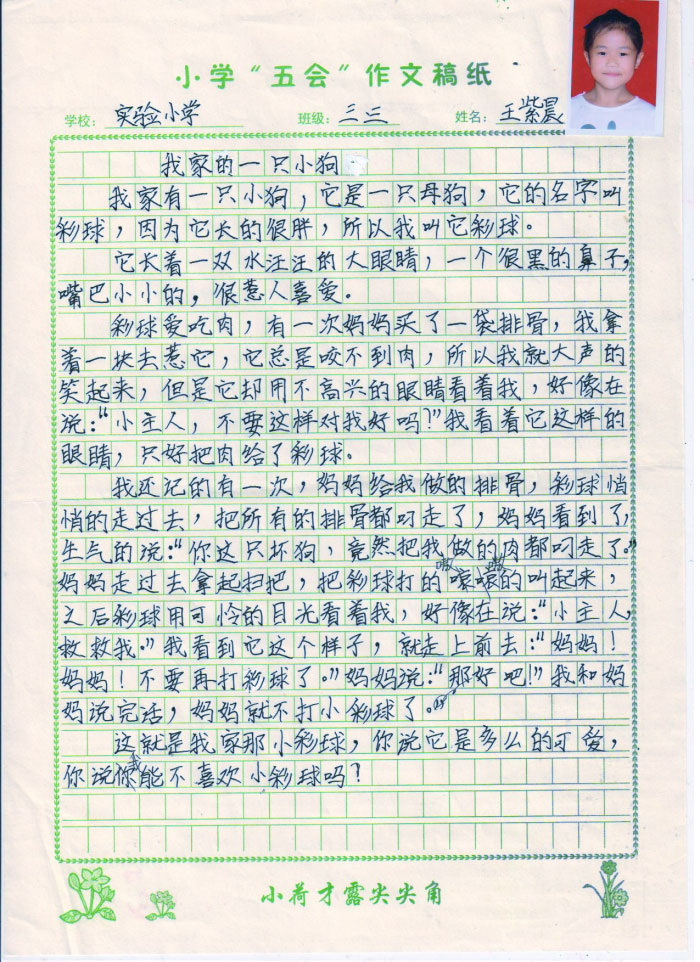 小学“五会”作文稿纸
学校：实验小学 班级：三三 姓名：王紫晨
我家的一只小狗
我家有一只小狗，它是一只母狗，它的名字叫
彩球，因为它长的很胖，所以我叫它彩球。
它长着一双水汪汪的大眼睛，一个很黑的鼻子，
嘴巴小小的，很惹人喜爱。
彩球爱吃肉，有一次妈妈买了一袋排骨，我拿
着一块去惹它，它总是咬不到肉，所以我就大声的
笑起来，但是它却用不高兴的眼睛看着我，好像在
说：“小主人，不要这样对我好吗？”我看着它这样的
眼睛，只好把肉给了彩球。
我还记的有一次，妈妈给我做的排骨，彩球悄
悄的走过去，把所有的排骨都叼走了，妈妈看到了，
生气的说：“你这只坏狗，竟然把我做的肉都叼走了。”
妈妈走过去拿起扫把，把彩球打的嗷嗷的叫起来，
之后彩球用可怜的目光看着我，好像在说：“小主人，
救救我。”我看到它这个样子，就走上前去：“妈妈！
妈妈！不要再打彩球了。”妈妈说：“那好吧！”我和妈
妈说完话，妈妈就不打小彩球了。
这就是我家那小彩球，你说它是多么的可爱，
你说我能不喜欢小彩球吗？
小荷才露尖尖角